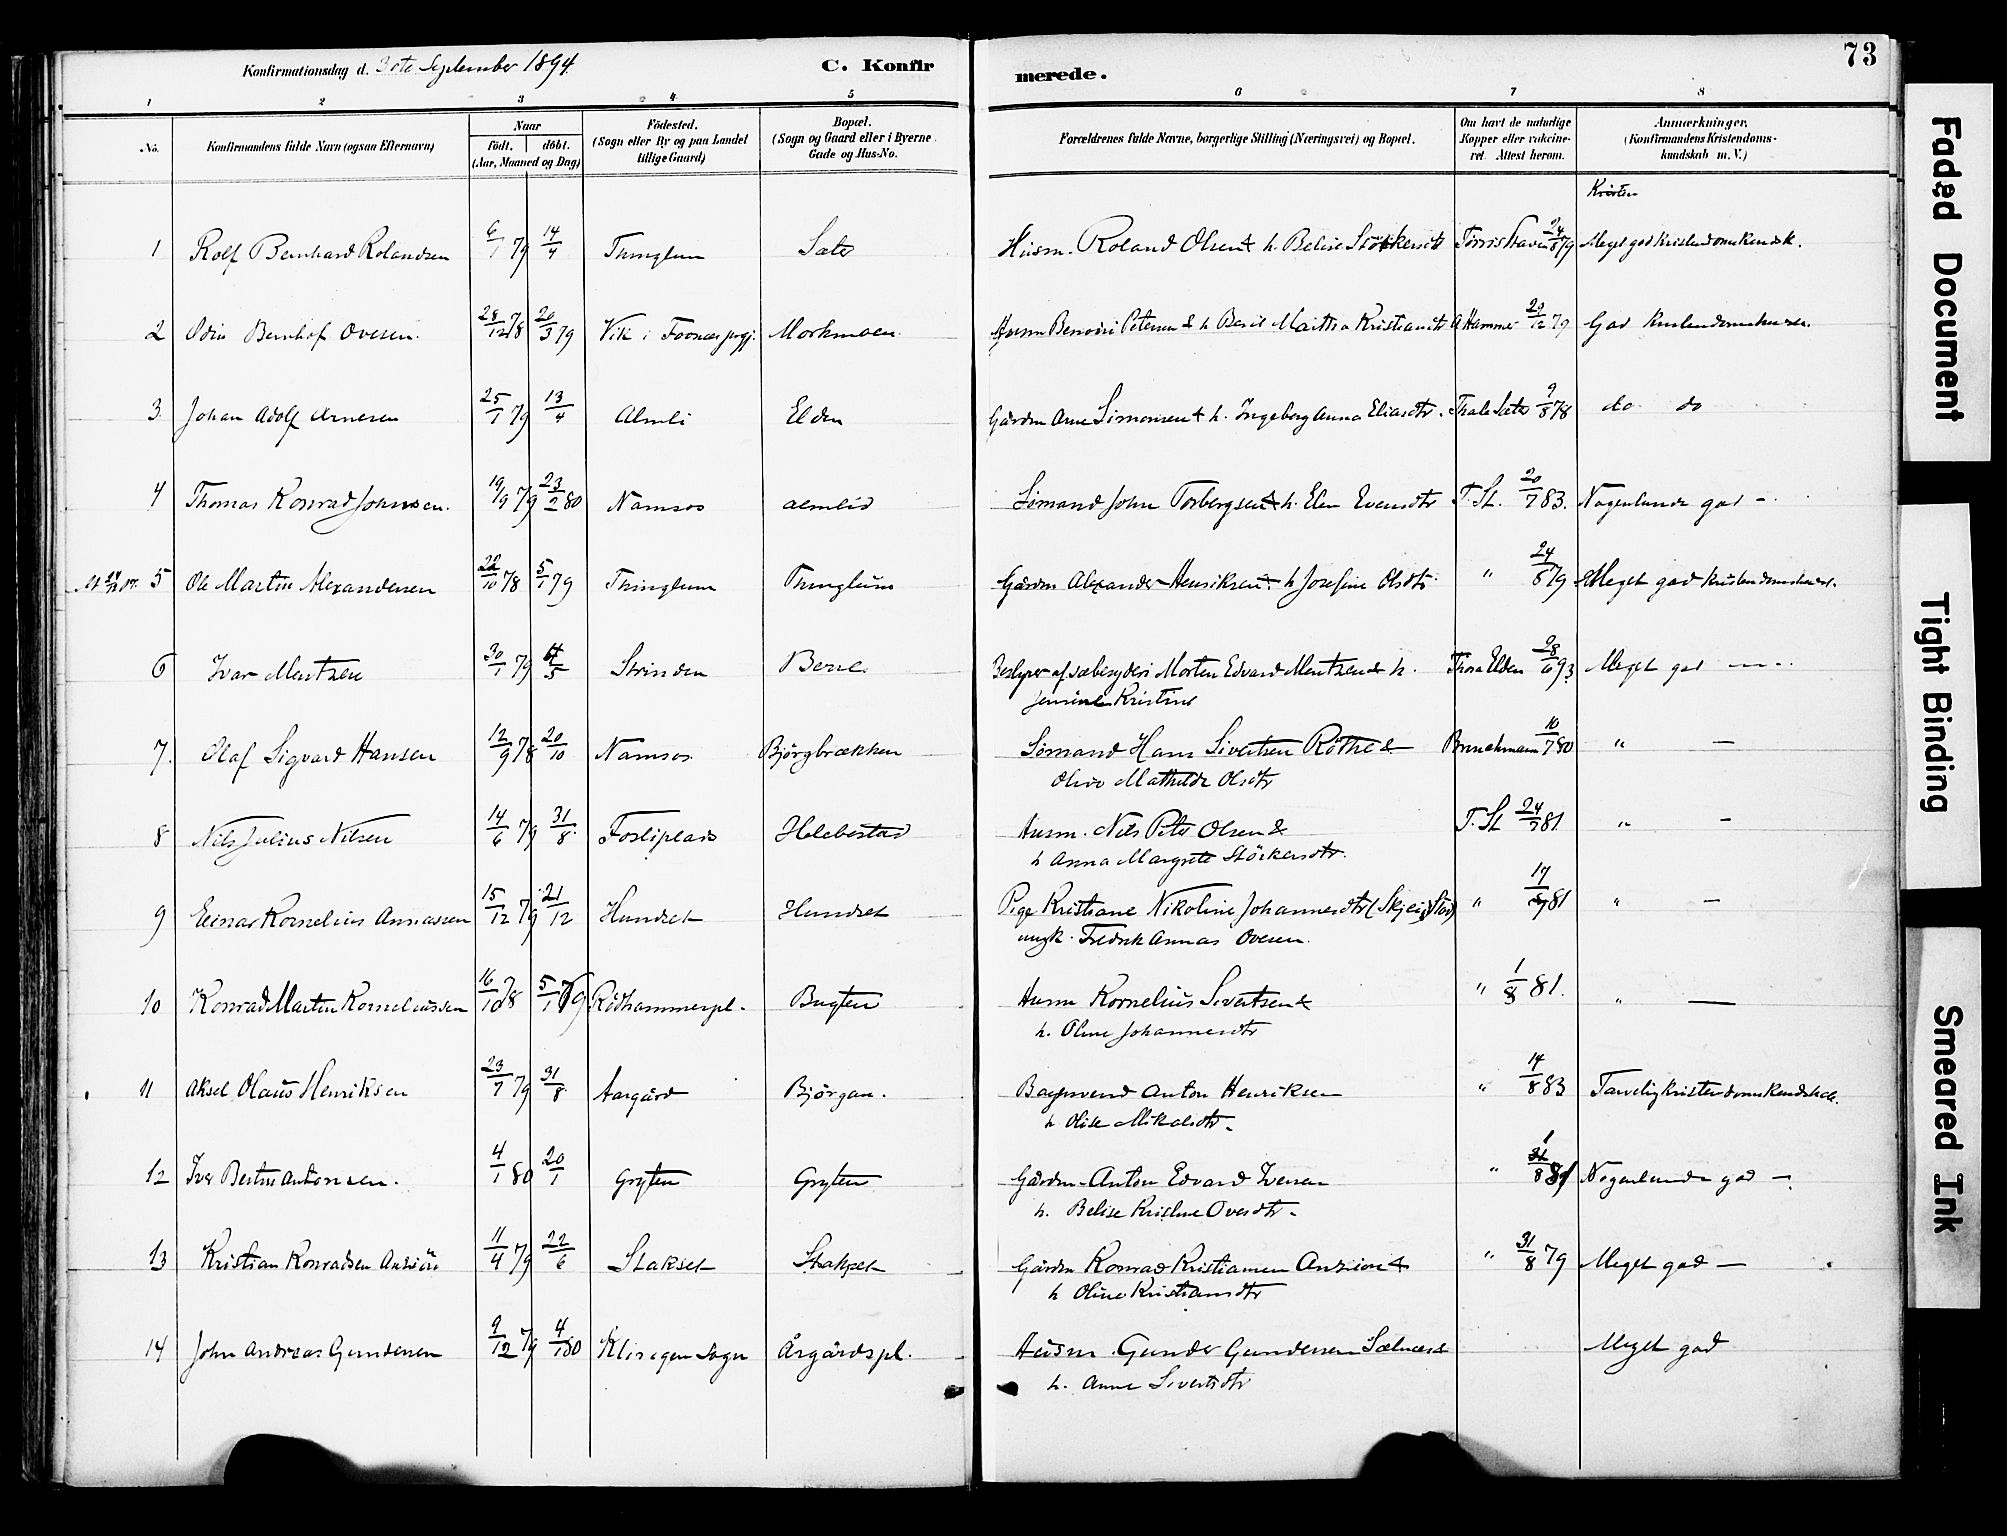 73
Konfirmationsdag d. 30te September 1894.
C. Konfir merede.
1 2 3 4 5 6 7 8
No.
Konfirmandens fulde Navn (ogsaa Efternavn)
Naar
födt. döbt.
(Aar, Maaned og Dag)
Födested.
(Sogn eller By og paa Landet
tillige Gaard)
Bopæl.
(Sogn og Gaard eller i Byerne
Gade og Hus-No.
Forældrenes fulde Navne, borgerlige Stilling (Næringsvei) og Bopæl.
Om havt de naturlige
Kopper eller vakcine-
ret. Attest herom.
Anmærkninger,
(Konfirmandens Kristendoms-
kundskab m. V.)
Kristen
1 Rolf Bernhard Rolandsen 6/1 79 14/4 Thinglum Sæter Husm. Roland Olsen & h. Belise Störkersdtr 24/6 79 Meget god kristendomskundsk.
2 Odin Bernhof Ovesen. 28/12 78 20/3 79 Vik i Fosnes prgj. Morkmoen Husm Petersen & h Kristiansdtr A Hammer 20/12 79 God kristendomskunsk.
3 Johan Adolf Arnesen 25/1 79 13/4 Almli Elden Gårdm Arne Simonsen & h. Ingeborg Anna Eliasdtr. Thale Sæter 9/8 78 do do
4 Thomas Konrad Johnsen. 19/9 79 23/2 80 Namsos Almlid Sömand John Torbergsen & h. Elen Evensdtr T. St. 20/7 83. Nogenlunde god -
5 Ole Martin Alexandersen 22/10 78 5/1 79 Thinglum Thinglum Gårdm Alexander Henriksen & h Josefine Olsdtr. " 24/6 79 Meget god kristendomskunds.
6 Ivar Mentzen 30/1 79 4/5 Strinden Berre Bestyrer af sæbesyderi Morten Edvard Mentzen & h. Thora Elden 28/6 93 Meget god
Kristine
7. Olaf Sigvard Hansen 12/9 78 20/10 Namsos Bjørgbrækken Sömand Hans Sivertsen Röthe & 10/7 80 " -
Olive Mathilde Olsdtr
8 Nils Julius Nilsen 14/6 79 31/8 Fosliplads Helebostad Husm. Nils Peter Olsen & T. St 24/7 81 " -
h Anna Margrete Störkersdtr.
9 Einar Kornelius Annassen 15/12 79 21/12 Hundset Hundset Pige Kristiane Nikoline Johannesdtr (Skjeistad) " 17/7 81 " -
ungk. Fredrik Annas Ovesen.
10 Konrad Martin Korneliussen 16/10 78 5/1 79 Rödhammerpl. Bugten Husm Kornelius Sivertsen & " 1/8 81. " -
h. Oline Johannesdtr
11 Aksel Olaus Henriksen 23/7 79 31/8 Aargård Bjørgan. Anton Henriksen " 14/8 83 Tarvelig kristendomskundskab.
h. Olise Mikalsdtr.
12 Iver Bertin Antonsen. 4/1 80 20/1 Gryten Gryten Gårdm Anton Edvard Iversen " 1/8 81 Nogenlunde god -
h. Belise Kristine Ovesdtr.
13 Kristian Konradsen Anzion 11/4 79 22/6 Slakset Slakset Gårdm Konrad Kristiansen Anzion & " 31/8 79 Meget god -
h Oline Kristiansdtr
14 John Andreas Gundersen 9/12 79 4/1 80 Klingen Sogn Årgårdspl. Husm. Gunder Gundersen Sælnes & Meget god
h. Anne Sivertsdtr
Faded Document
Tight Binding
Smeared Ink